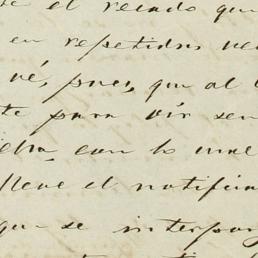 el recado que
en repetidas
vé, pues, que al
para oír sen
con lo cual
lleve el notifica
que se interpon